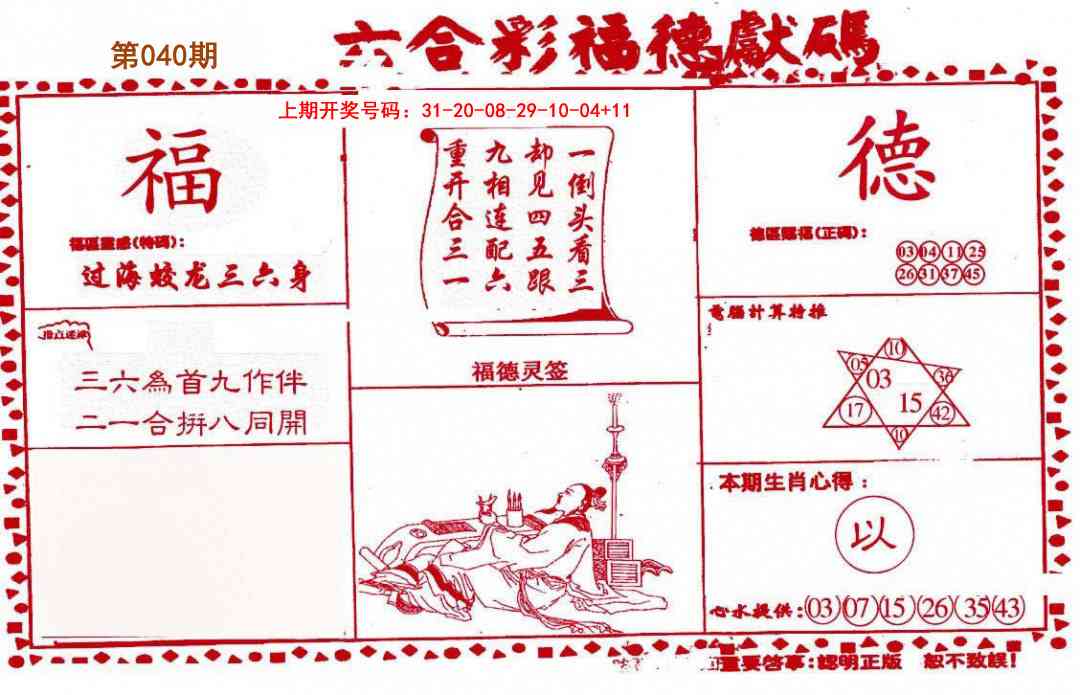 第040期
六合彩福德獻碼
上期开奖号码：31-20-08-29-10-04+11
福
福區靈感(特碼)：
过海蛟龙三六身
三六為首九作伴
二一合拼八同開
一倒头看三
却见四五跟
九相连配六
重开合三一
福德灵签
德
德區賜福(正碼)：
03 04 11 25
26 31 37 45
電腦計算特推
10
05 03 36
17 15 42
10
本期生肖心得：
以
心水提供：03 07 15 26 35 43
重要啓事：認明正版 恕不致誤！